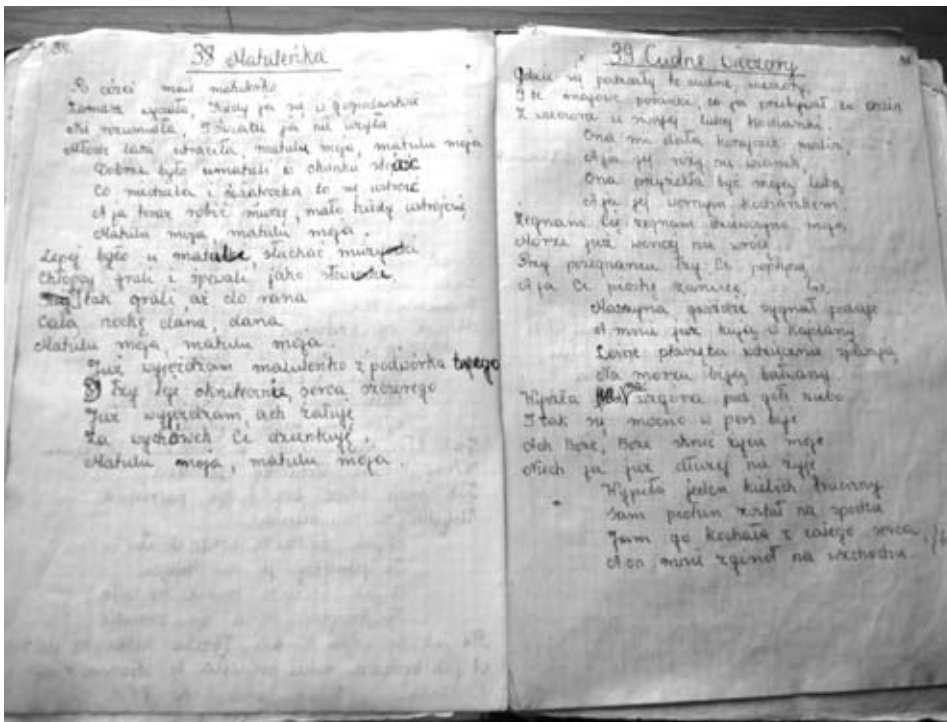 38 Matuleńka
Po cóżeś mnie matuleńko
Zamąż wydała, Kiedy ja się w gospodarstwie
Nie rozumiała, I świata ja nie użyła
Młode lata straciła matulu moja, matulu moja
Dobrze było u matuli w okienku
Co niedziela i świątecka to się ustroić
A ja teraz robić muszę, mało kiedy ustrojem
Matulu moja matulu moja.
Lepij było u matule, słuchać muzycki
Chłopcy grali i śpiwali jako słowicki.
I tak grali, aż do rana
Całą nockę dana, dana
Matulu moja, matulu moja.
Już wyjeżdżam matuleńko z podwórka twego
I łzy leje okrutecnie, serca szczerego
Już wyjeżdżam, ach żałuję
Za wychówek Ci dziękuję.
Matulu moja, matulu moja.
39 Cudne wieczory
Gdzie się podziały te cudne wieczory,
I te majowe poranki, co ja przebywał
Z wieczora u swojej lubej kochanki.
Ona mi dała koszyczek malin,
A ja jej róży na wianek,
Ona przyrzekła być mojej lubą
A ja jej wiernym kochankiem.
Żegnam Cię żegnam dziewczyno moja
Morze już wencej nie wróce
Przy pożegnaniu łzy Ci
A ja Ci piosnkę zanucę.
Maszyna gwiżdże sygnał podaje
A mnie już kują w kajdany
Leśne ptaszęta
Na morzu biją bałwany.
Wypiła pod gołe niebo
I tak się mocno w pierś bije
Ach Boże, Boże skróć życie moje
Niech ja już dłużej nie żyję
Wypiła jeden kielich trucizny
Sam piołun został na spodzie
Jam go kochała z całego serca,
A on mnie zginoł na wschodzie.